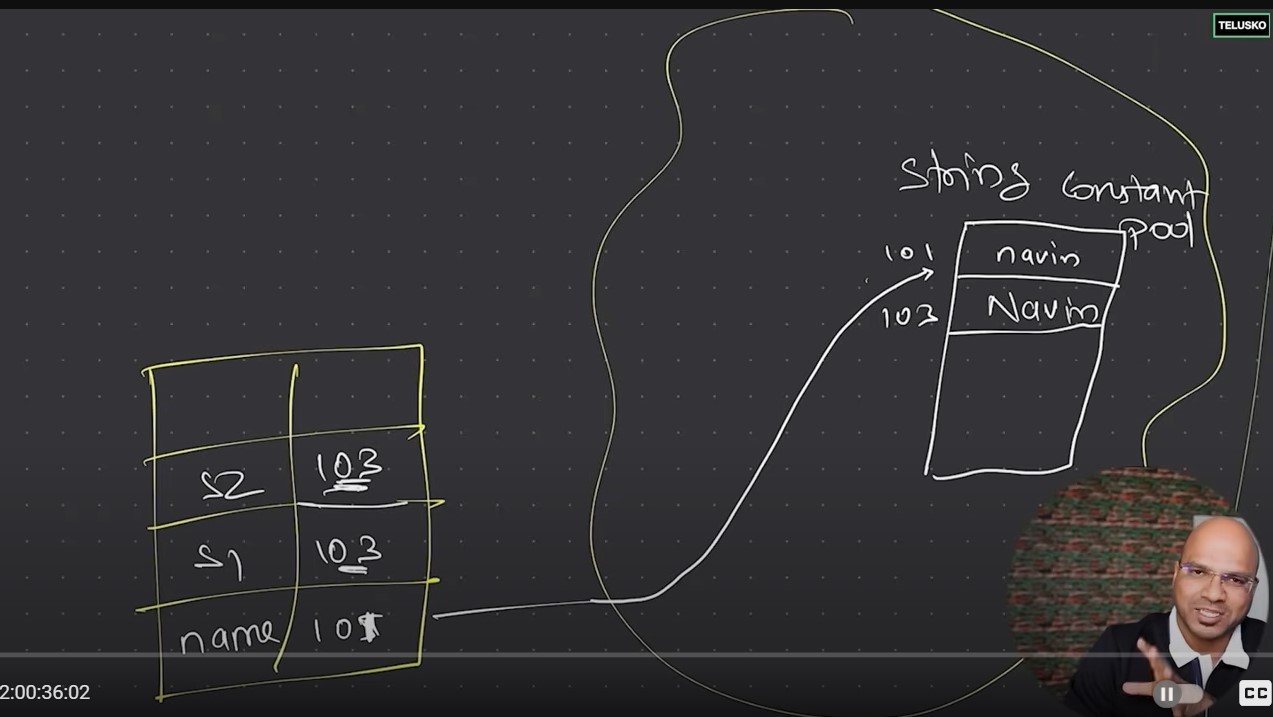 TELUSKO
String Constant
pool
101 navin
103 Navin
S2 103
S1 103
name 101
2:00:36:02
CC